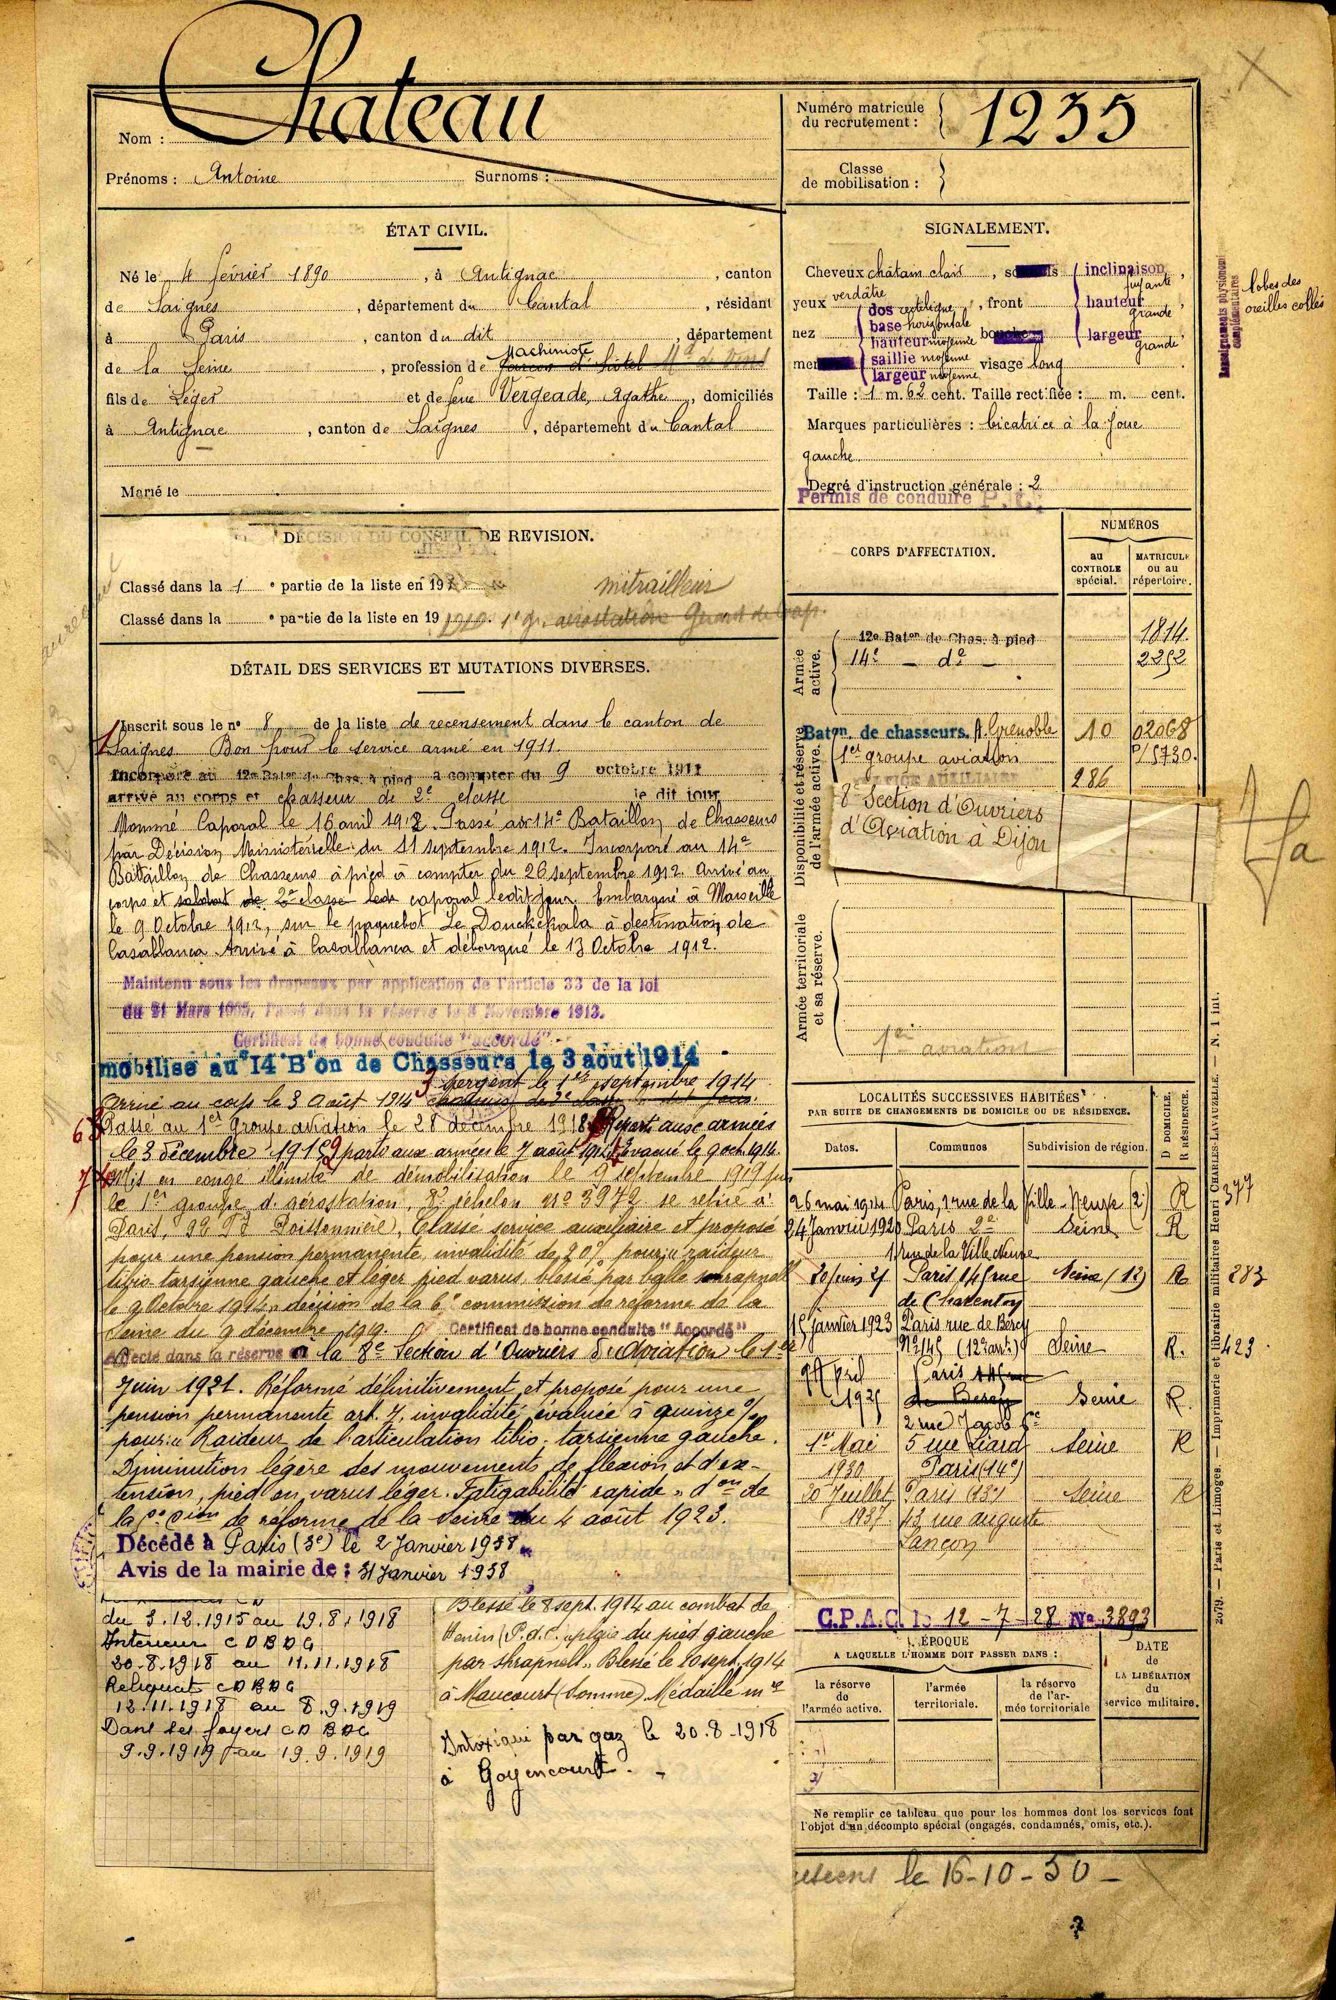 Nom : Chateau
Prénoms : Antoine Surnoms :
Numéro matricule
du recrutement : 1235
Classe
de mobilisation :
ÉTAT CIVIL.
Né le 4 février 1890, à Antignac, canton
de Saignes, département du Cantal, résidant
à Paris, canton du dit, département
Machiniste
de la Seine, profession de Garçon d'hôtel Md de vins
fils de Léger et de feue Vergeade, Agathe, domiciliés
à Antignac, canton de Saignes, département du Cantal
Marié le
SIGNALEMENT.
Cheveux châtain clair,
yeux verdâtre, front inclinaison fuyante, hauteur grande, largeur grande
nez dos rectiligne base horizontale hauteur moyenne saillie moyenne largeur moyenne
visage long
Taille : 1 m. 62 cent. Taille rectifiée : m. cent.
Marques particulières : Cicatrice à la joue
gauche
Degré d'instruction générale : 2
Permis de conduire P. C.
Renseignements physionom. complémentaires
lobes des
oreilles collés
DÉCISION DU CONSEIL DE REVISION.
Classé dans la 1e partie de la liste en 19
mitrailleur
Classé dans la e partie de la liste en 19
DÉTAIL DES SERVICES ET MUTATIONS DIVERSES.
Inscrit sous le no 8 de la liste de recensement dans le canton de
Saignes Bon pour le service armé en 1911
Incorporé au 12e Baton de Chas. à pied à compter du 9 octobre 1911
arrivé au corps et chasseur de 2e classe le dit jour
Nommé Caporal le 16 avril 1912. Passé au 14e Bataillon de Chasseurs
par Décision Ministérielle du 11 septembre 1912. Incorporé au 14e
Bataillon de Chasseurs à pied à compter du 26 septembre 1912. Arrivé au
corps et soldat de 2e classe caporal ledit jour. Embarqué à Marseille
le 9 Octobre 1912, sur le paquebot Le Douckkala à destination de
Casablanca. Arrivé à Casablanca et débarqué le 13 Octobre 1912.
Maintenu sous les drapeaux par application de l'article 33 de la loi
du 21 Mars 1905, Passé dans la réserve le 8 Novembre 1913.
Certificat de bonne conduite "accordé"
mobilisé au 14e B'on de Chasseurs le 3 aout 1914
3 Sergent le 1er septembre 1914
Arrivé au corps le 3 Août 1914
Passé au 1er Groupe aviation le 28 décembre 1918 Reparti aux armées
le 3 décembre 1915 2 parti aux armées le 7 août 1914 Evacué le 9 oct. 1914
Mis en congé illimité de démobilisation le 9 septembre 1919 par
le 1er groupe d'aérostation, 8e échelon no 3972 se retire à
Paris, 99 Poissonnière, Classé service auxiliaire et proposé
pour une pension permanente invalidité de 20% pour : raideur
tibio-tarsienne gauche et léger pied varus, blessé par balle shrapnell
le 9 Octobre 1914, décision de la 6e commission de réforme de la
Seine du 9 décembre 1919. Certificat de bonne conduite "Accordé"
Affecté dans la réserve à la 8e Section d'Ouvriers d'Aviation le 1er
Juin 1921. Réformé définitivement et proposé pour une
pension permanente art. 7, invalidité évaluée à quinze %
pour : Raideur de l'articulation tibio-tarsienne gauche.
Diminution légère des mouvements de flexion et d'ex-
tension, pied en varus léger. Fatigabilité rapide, don de
la de réforme de la Seine du 4 août 1923.
Décédé à Paris (3e) le 2 Janvier 1938
Avis de la mairie de : 31 Janvier 1938
du 3.12.1915 au 19.8.1918
Intérieur C D B D G
20.8.1918 au 11.11.1918
Reliquat C D B D G
12.11.1918 au 8.9.1919
Dans ses foyers C D B D G
9.9.1919 au 19.9.1919
Blessé le 8 sept. 1914 au combat de
Henin (P.d.C.) plaie du pied gauche
par shrapnell. Blessé le 10 sept. 1914
à Maucourt (Somme) Médaille mre
Intoxiqué par gaz le 20-8-1918
à Goyencourt.
CORPS D'AFFECTATION.
NUMÉROS
au
CONTROLE
spécial.
MATRICULE
ou au
répertoire.
Armée
active.
12e Baton de Chas. à pied 1814.
14e - do - 2252
Disponibilité et réserve
de l'armée active.
Baton de chasseurs. A Grenoble 10 02068
1er groupe aviation P/5730.
SERVICE AUXILIAIRE 286
8e Section d'Ouvriers
d'Aviation à Dijon
Armée territoriale
et sa réserve.
1er aviation
LOCALITÉS SUCCESSIVES HABITÉES
PAR SUITE DE CHANGEMENTS DE DOMICILE OU DE RÉSIDENCE.
Dates. Communes Subdivision de région. D DOMICILE. R RÉSIDENCE.
26 mai 1914 Paris, 1 rue de la Ville-Neuve (2e) R 377
24 Janvier 1920 Paris 2e Seine R
1 rue de la Ville Neuve
20 juin 21 Paris 145 rue Seine (12) R 283
de Charenton
15 janvier 1923 Paris rue de Bercy
No 145 (12e arrt) Seine R. 423
9 April Paris 145 rue
1925 de Bercy Seine R.
2 rue Jacob
1er Mai 5 rue Liard Seine R
1930 Paris (14e)
20 Juillet Paris (13e) Seine R
1937 43 rue auguste
Lançon
C.P.A.C. le 12-7-28 No 3893
ÉPOQUE
A LAQUELLE L'HOMME DOIT PASSER DANS :
la réserve
de
l'armée active.
l'armée
territoriale.
la réserve
de l'ar-
mée territoriale
DATE
de
LA LIBÉRATION
du
service militaire.
Ne remplir ce tableau que pour les hommes dont les services font
l'objet d'un décompte spécial (engagés, condamnés, omis, etc.).
le 16-10-50
2079. — Paris et Limoges. — Imprimerie et librairie militaires Henri CHARLES-LAVAUZELLE. — N. 1 int.